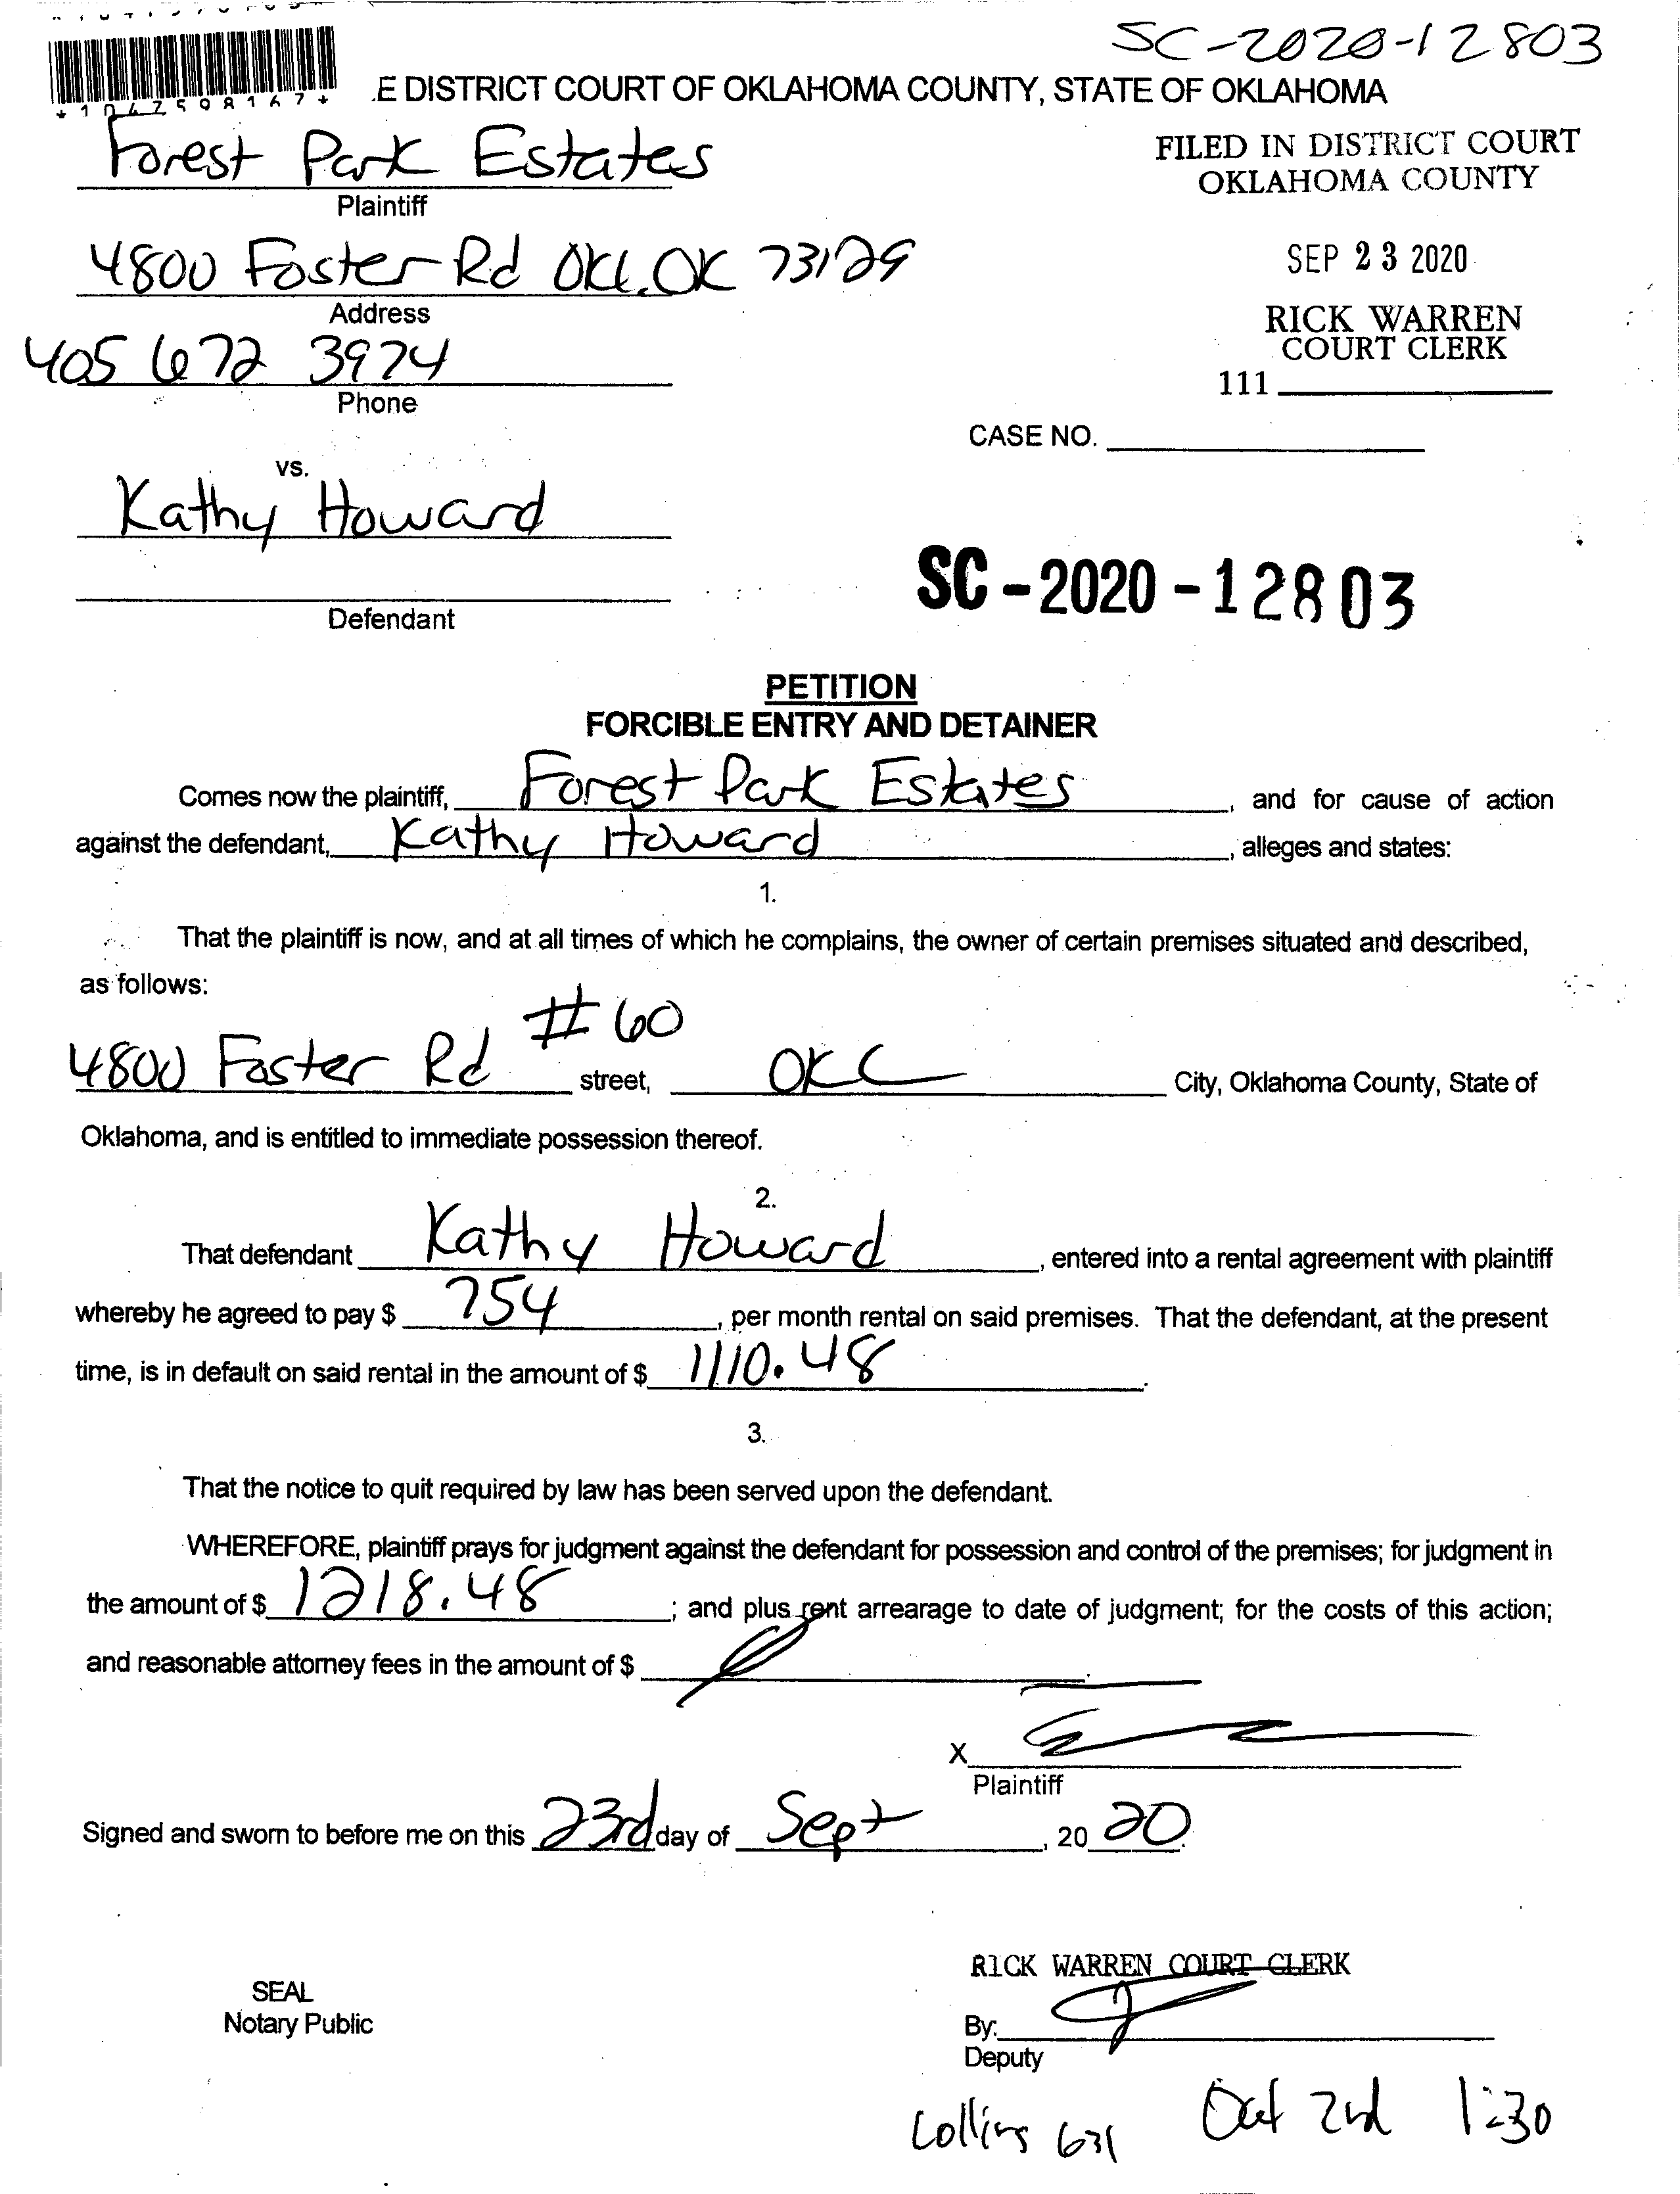 SC-2020-12803
.E DISTRICT COURT OF OKLAHOMA COUNTY, STATE OF OKLAHOMA
*1047598167*
Forest Park Estates
Plaintiff
FILED IN DISTRICT COURT
OKLAHOMA COUNTY
4800 Foster Rd OKC, OK 73129
Address
SEP 23 2020
405 672 3974
Phone
RICK WARREN
COURT CLERK
111
CASE NO.
vs.
Kathy Howard
Defendant
SC-2020-12803
PETITION
FORCIBLE ENTRY AND DETAINER
Comes now the plaintiff, Forest Park Estates, and for cause of action
against the defendant, Kathy Howard, alleges and states:
1.
That the plaintiff is now, and at all times of which he complains, the owner of certain premises situated and described,
as follows:
4800 Foster Rd #60 street, OKC City, Oklahoma County, State of
Oklahoma, and is entitled to immediate possession thereof.
2.
That defendant Kathy Howard, entered into a rental agreement with plaintiff
whereby he agreed to pay $ 754, per month rental on said premises. That the defendant, at the present
time, is in default on said rental in the amount of $ 1110.48.
3.
That the notice to quit required by law has been served upon the defendant.
WHEREFORE, plaintiff prays for judgment against the defendant for possession and control of the premises; for judgment in
the amount of $ 1218.48; and plus rent arrearage to date of judgment; for the costs of this action;
and reasonable attorney fees in the amount of $
X
Plaintiff
Signed and sworn to before me on this 23rd day of Sept, 20 20.
RICK WARREN COURT CLERK
SEAL
Notary Public
By:
Deputy
Collins 631 Oct 2nd 1:30